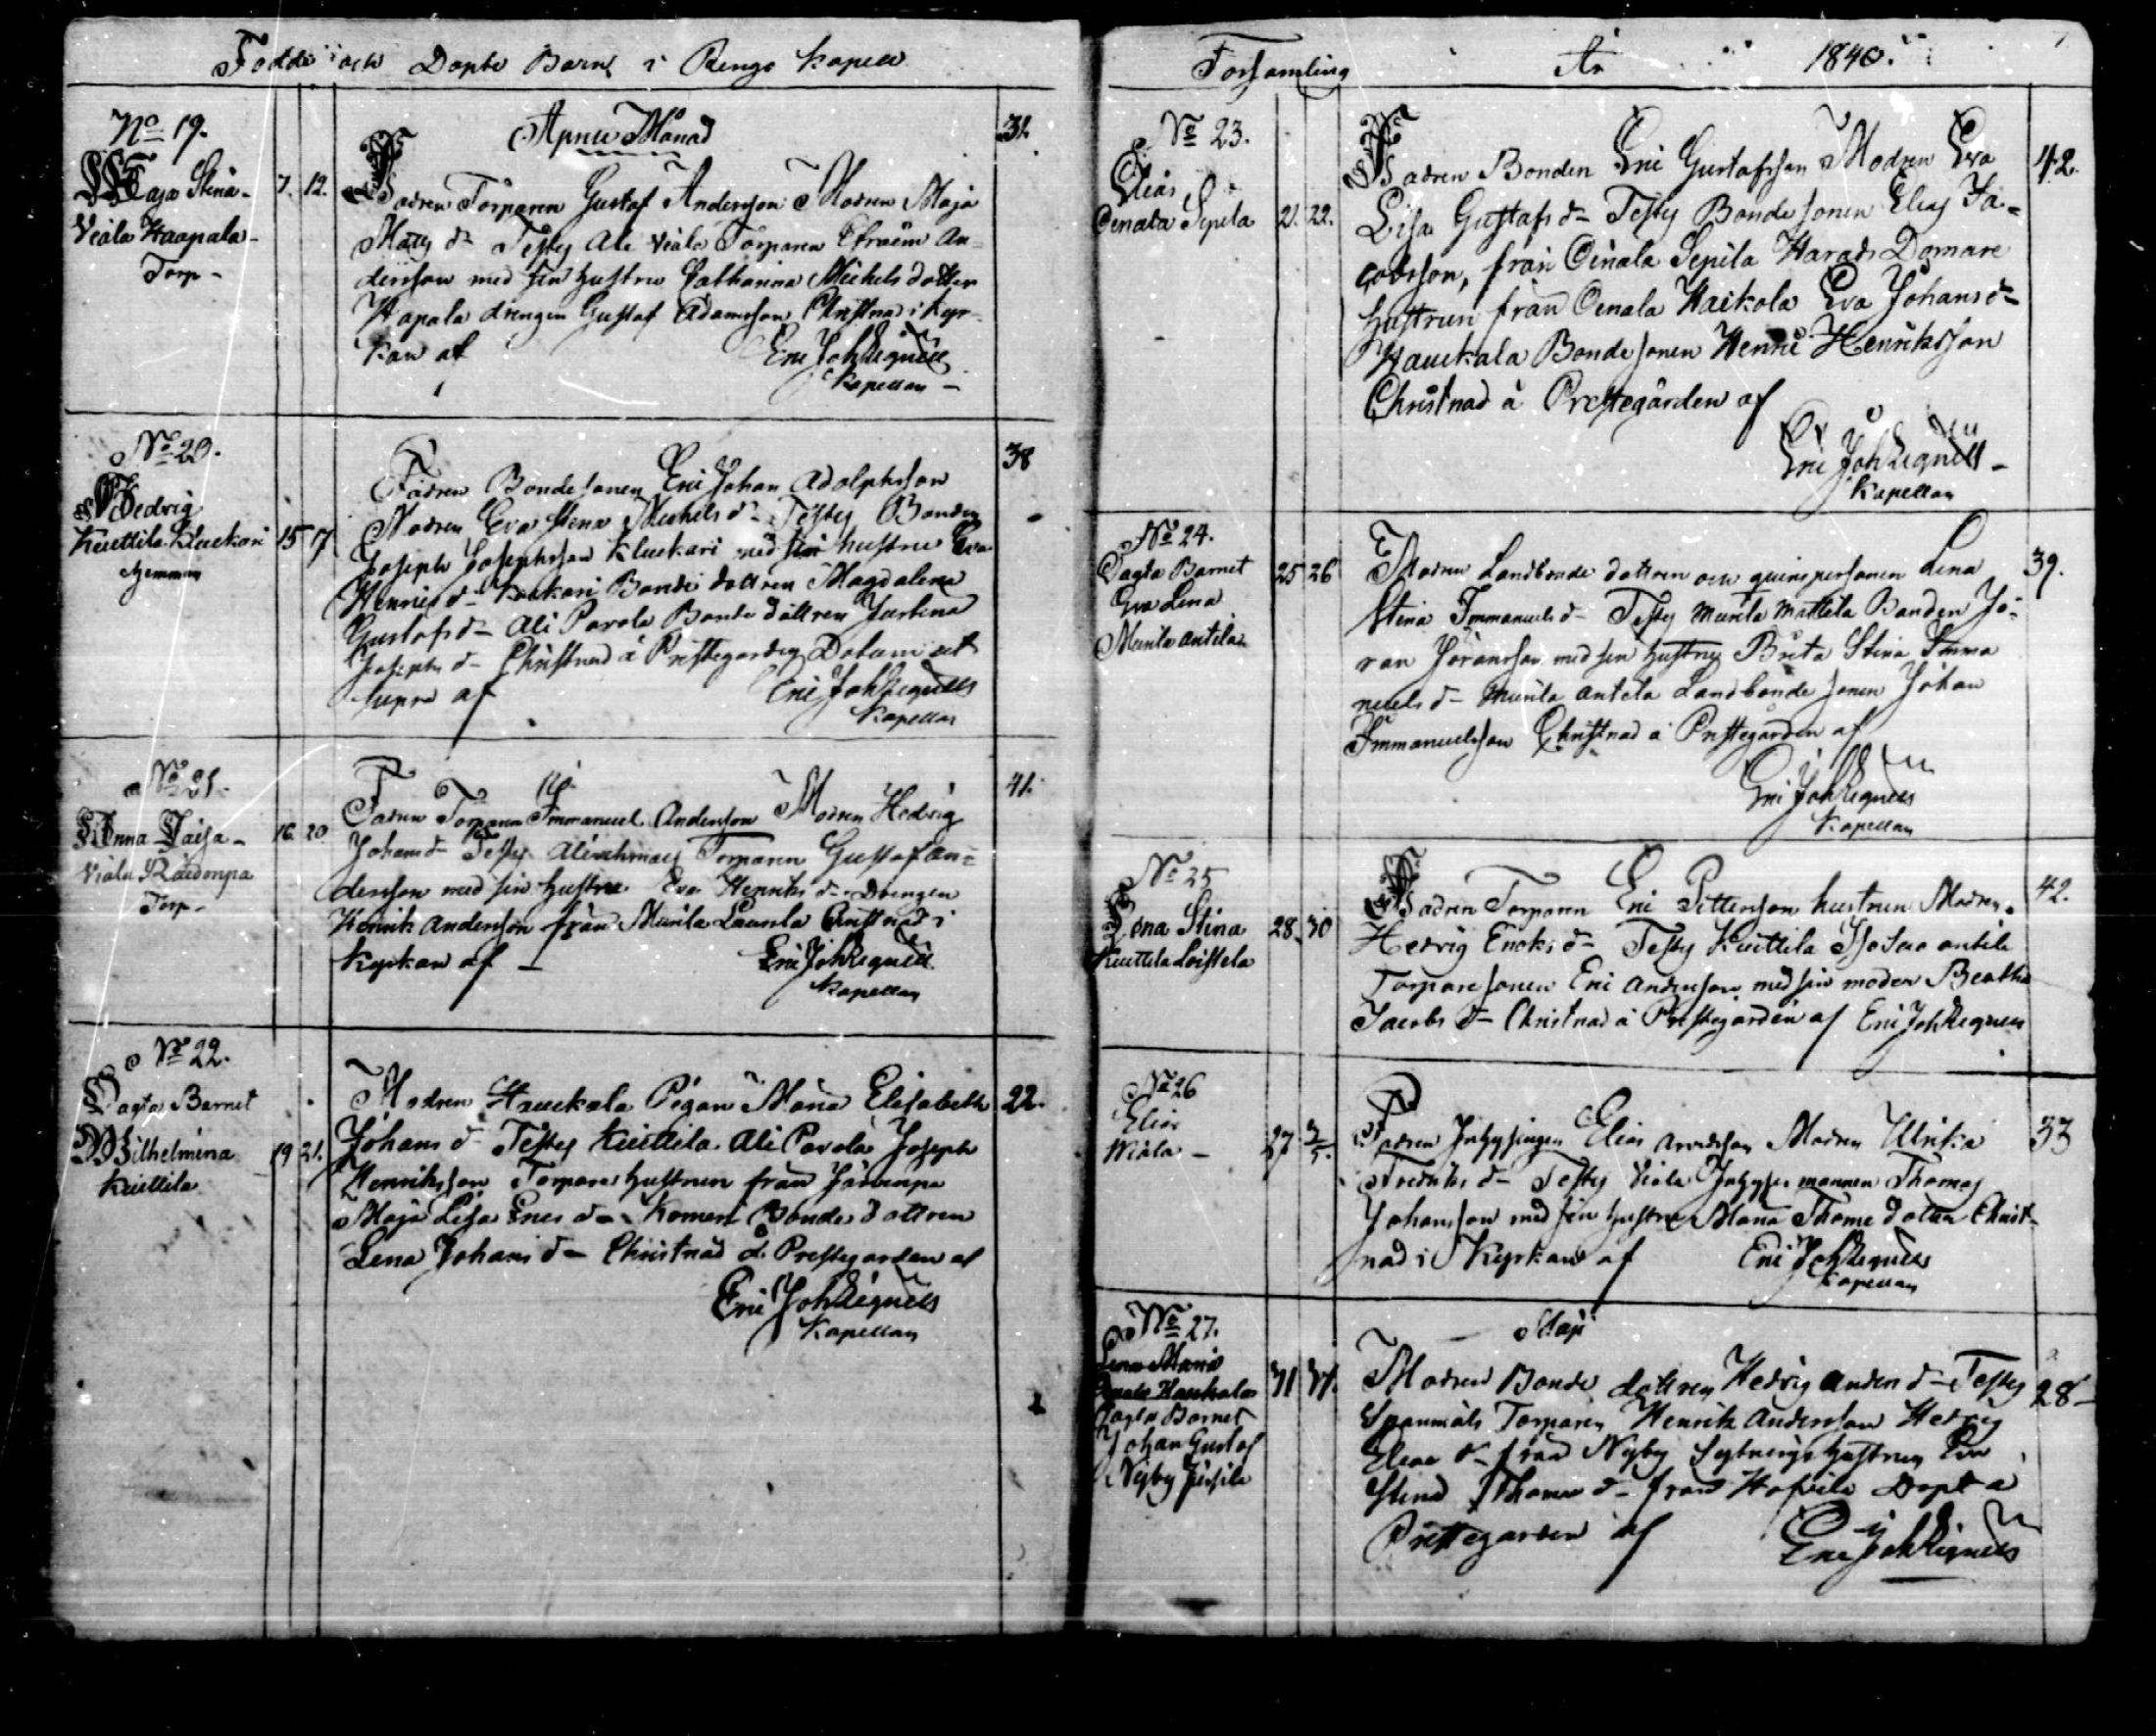 Födde och Döpte Barn i Rengo Kapell
No 19.
Maja Stina
Viala Haapala
Torp
7. 12.
April Månad
Fadren Torparen Gustaf Andersson Modren Maja
Matts d- Testes Ali Viala Torparen Efraim An=
dersson med sin hustru Catharina Michels dotter
Hapala drengen Gustaf Adamsson Christnad i Kyr-
kan af Eric Joh Regnell
Kapellan
31.
No 20.
Hedvig
Kuittila Kluckari
Hemman
15 17
Fadren Bondesonen Eric Johan Adolphsson
Modren Eva Stina Michels d- Testes Bonden
Joseph Josephsson Kluckari med sin hustru Eva
Henrics d- Bonde dottren Magdalena
Gustafs d- Ali Parola Bonde dottren Justina
Josephs d- Christnad å Prestegården Datum ut
supra af Eric Joh Regnell
Kapellan
38
No 21.
Anna Caisa
Viala Raidonpa
Torp
16. 20
Fadren Torparen Immanuel Andersson Modren Hedvig
Johans d- Testes Torparen Gustaf An=
dersson med sin hustru Eva Henriks d- Drengen
Henrik Andersson från Munila Launla Christnad i
Kyrkan af Eric Joh Regnell
Kapellan
41.
No 22.
Oägta Barnet
Wilhelmina
Kuittila
19 21.
Modren Hauckala Pigan Maria Elisabeth
Johans d- Testes Kuittila Ali Parola Joseph
Henriksson Torpares hustrun från
Maja Lisa Erics d- Komeri Bonde dottren
Lena Johans d- Christnad å Prestegården af
Eric Joh Regnell
Kapellan
22.
Församling År 1840.
No 23.
Elias
Oenala Sepila
21. 22.
Fadren Bonden Eric Gustafsson Modren Eva
Lisa Gustafs d- Testes Bonde sonen Elias Ja=
cobsson, från Oinala Sepila Härads Domare
hustrun från Oenala Haikola Eva Johans d-
Hauckala Bonde sonen Henric Henriksson
Christnad å Prestegården af
Eric Joh Regnell
Kapellan
42.
No 24.
Oägta Barnet
Eva Lena
Munila Antila
25 26
Modren Landbonde dottren och qvinspersonen Lena
Stina Immanuels d- Testes Munila Mattila Bonden Jö=
ran Jöransson med sin hustru Brita Stina Imma
nuels d- Munila Antila Landbonde sonen Johan
Immanuelsson Christnad å Prestegården af
Eric Joh Regnell
Kapellan
39.
No 25
Lena Stina
Kuittila Loistela
28. 30
Fadren Torparen Eric Pettersson hustrun Modren
Hedvig Enoks d- Testes Kuittila Antila
Torpare sonen Eric Andersson med sin moder Beatha
Jacobs d- Christnad å Prestegården af Eric Joh Regnell
42.
No 26
Elias
Wiala
27 3/5.
Fadren Inhysingen Elias Arvidsson Modren Ulrika
Fredriks d- Testes Viala Inhyses mannen Thomas
Johansson med sin hustru Maria Thome dotter Christ-
nad i Kyrkan af Eric Joh Regnell
Kapellan
33
No 27.
Lena Maria
Hauckala
Oägta Barnet
Johan Gustaf
Nyby Jussila
31
Maji
Modren Bonde dottren Hedvig Anders d- Testes
Spanmåls Torparen Henrik Andersson Hedvig
Elias d- från Nyby hustrun Eva
Stina Thomas d- från Hofvila Döpt å
Prestegården af
Eric Joh Regnell
28